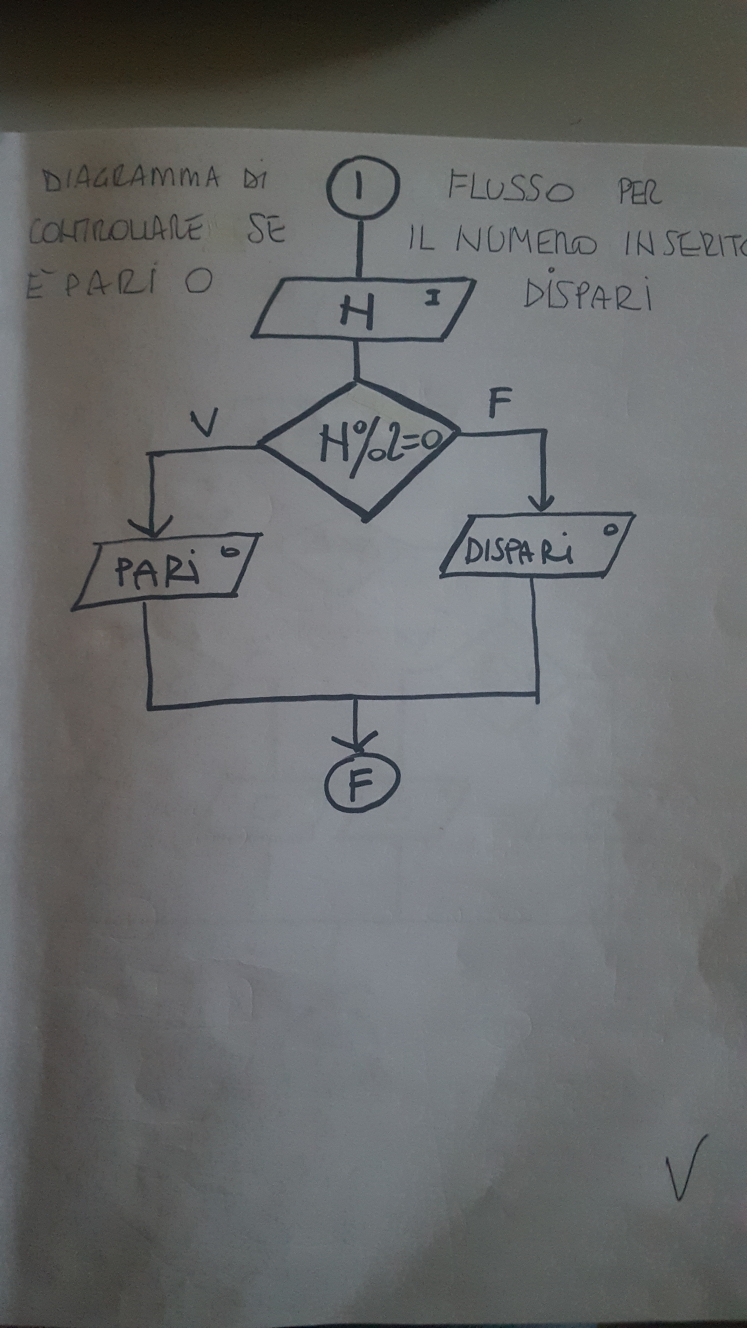 DIAGRAMMA Di FLUSSO PER
CONTROLLARE SE IL NUMERO INSERITO
È PARI O DISPARI
I
N I
N%2=0
V
F
PARi O
DISPARi O
F
V